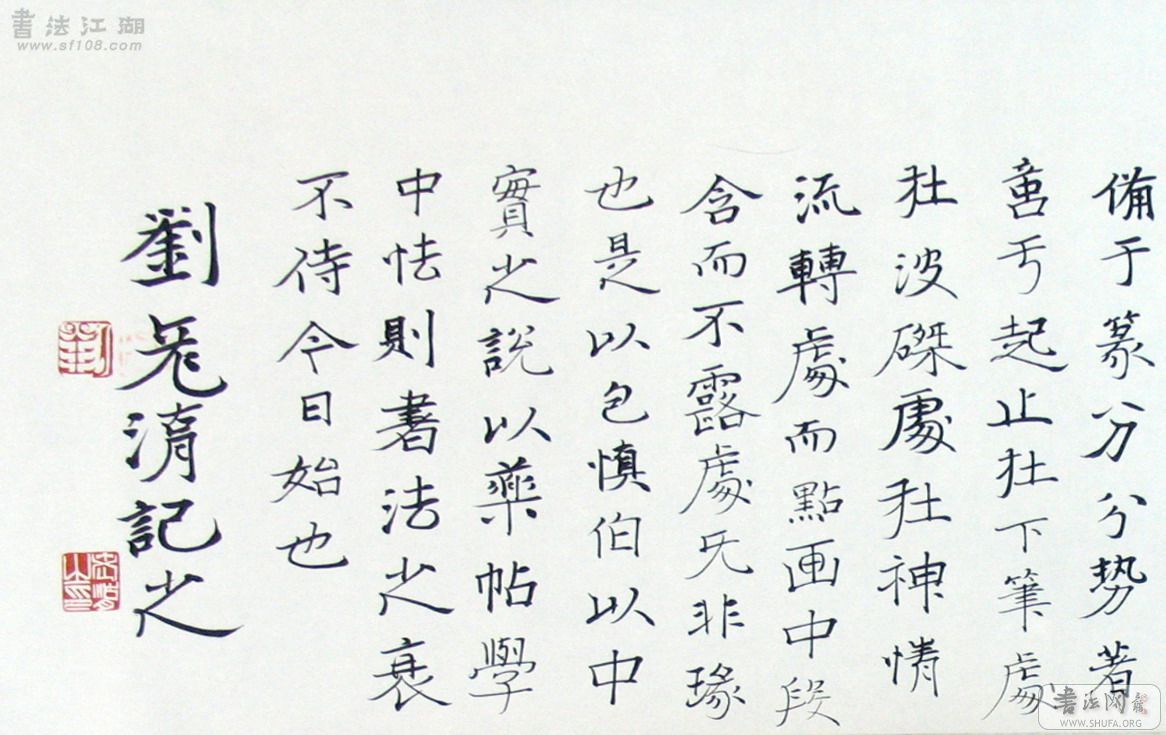 備于篆分分势著
意亏起止在下筆處
在波磔處在神情
流轉處而點画中段
含而不露處无非缘
也是以包慎伯以中
實之說以藥帖學
中怯則書法之衰
不待今日始也
劉 記之
書法江湖
www.sf108.com
書法网
WWW.SHUFA.ORG